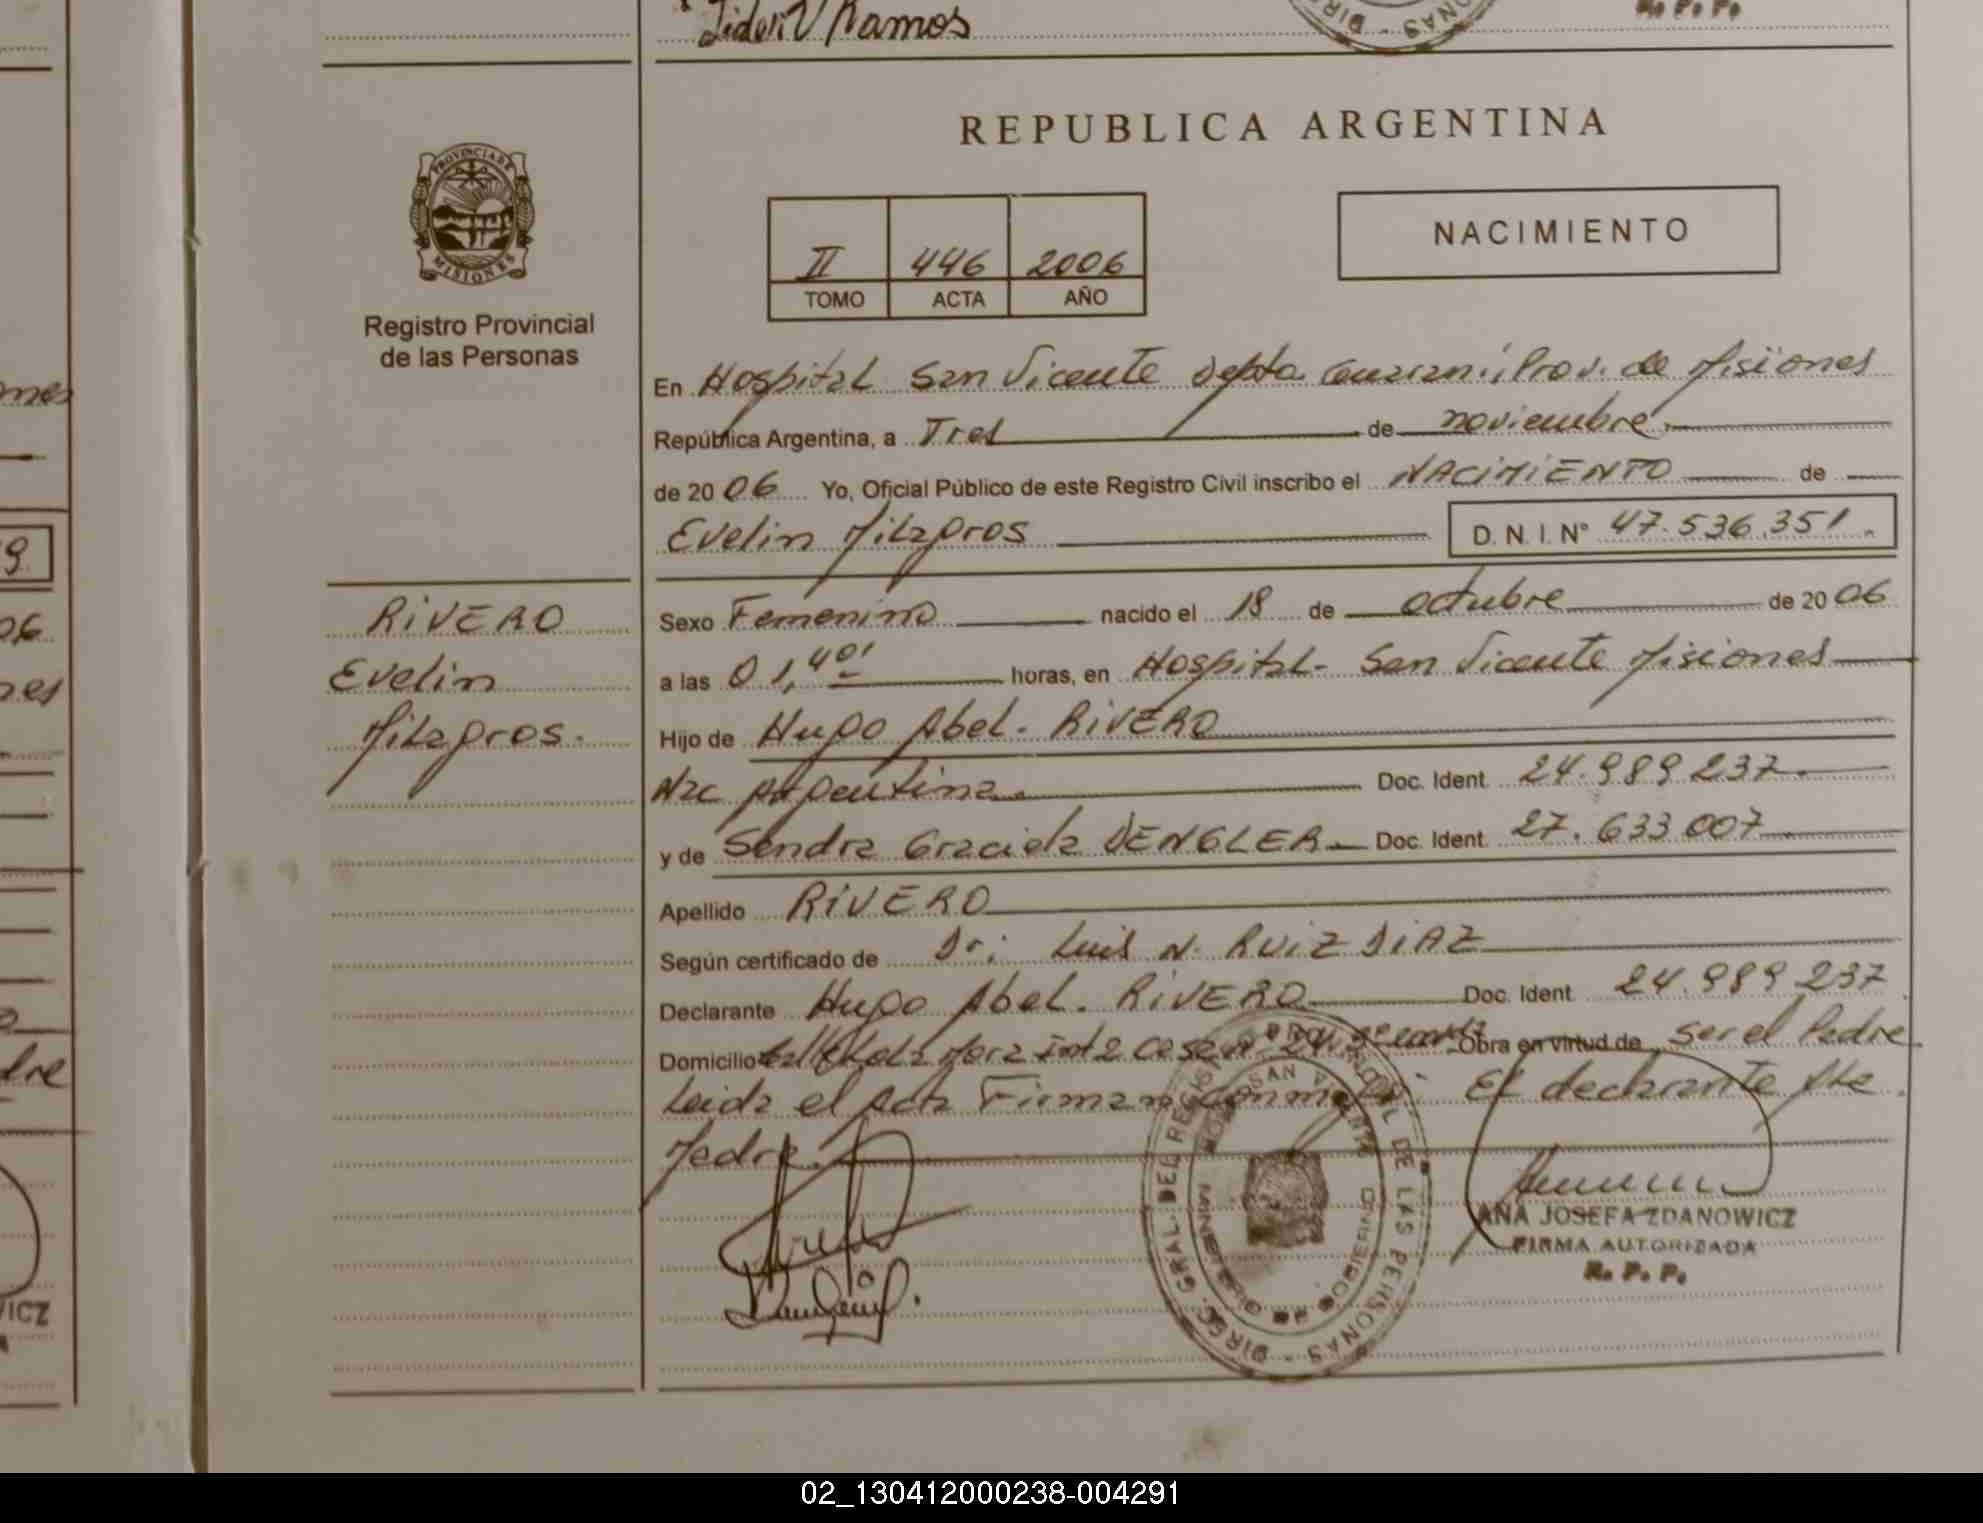 Lider V Ramos
R. P. P.
PROVINCIA DE
MISIONES
Registro Provincial
de las Personas
REPUBLICA ARGENTINA
II 446 2006
TOMO ACTA AÑO
NACIMIENTO
En Hospital San Vicente Depto. Guarani, Prov. de Misiones
República Argentina, a Tres de noviembre
de 2006 Yo, Oficial Público de este Registro Civil inscribo el NACIMIENTO de
Evelin Milagros D. N. I. N° 47.536.351.
RIVERO
Evelin
Milagros.
Sexo Femenino nacido el 18 de octubre de 2006
a las 01,40' horas, en Hospital - San Vicente Misiones
Hijo de Hugo Abel. RIVERO
Nac Argentina. Doc. Ident. 24.989 237.
y de Sandra Graciela DENGLER Doc. Ident. 27.633 007
Apellido RIVERO
Según certificado de Dr: Luis N. RUIZ DIAZ
Declarante Hugo Abel. RIVERO Doc. Ident. 24.989 237
Domicilio Obra en virtud de Ser el Padre
Leida el Acta Firman Conmigo: El declarante y la
Madre.
DIREC. GRAL. DEL REGISTRO PROVINCIAL DE LAS PERSONAS
SAN VICENTE
ANA JOSEFA ZDANOWICZ
FIRMA AUTORIZADA
R. P. P.
02_130412000238-004291